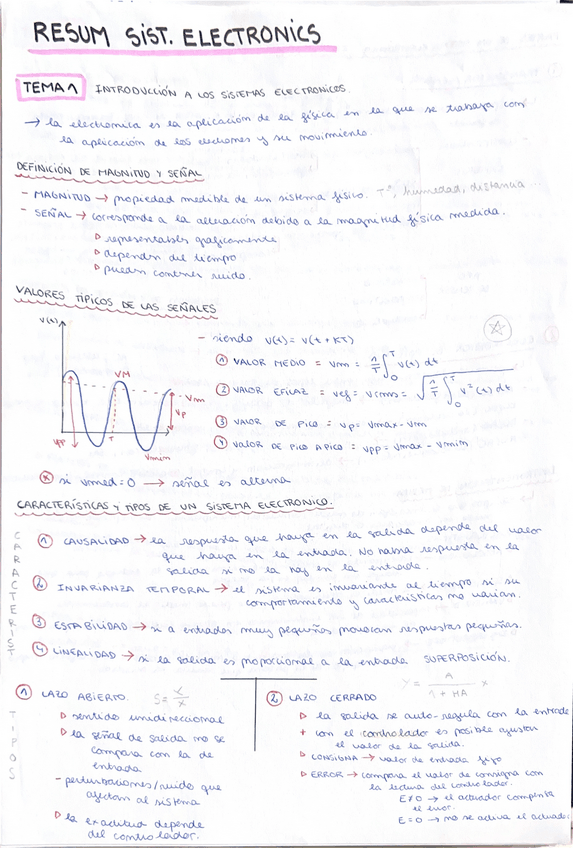 RESUM SIST. ELECTRONICS
TEMA 1 INTRODUCCIÓN A LOS SISTEMAS ELECTRONICOS.
→ la electronica es la aplicación de la física en la que se trabaja con
la aplicación de los electrones y su movimiento.
DEFINICIÓN DE MAGNITUD Y SEÑAL
- MAGNITUD → propiedad medible de un sistema físico. Tª, humedad, distancia...
- SEÑAL → corresponde a la alteración debido a la magnitud física medida.
▷ representables gráficamente
▷ dependen del tiempo
▷ pueden contener ruido.
VALORES TÍPICOS DE LAS SEÑALES
V(t)
VM
Vm
Vp
Vpp
T
Vmin
- siendo V(t) = V(t + KT)
① VALOR MEDIO = Vm = 1/T ∫₀ᵀ V(t) dt
② VALOR EFICAZ = Vef = Vrms = √(1/T ∫₀ᵀ V²(t) dt)
③ VALOR DE PICO = Vp = Vmax - Vm
④ VALOR DE PICO A PICO = Vpp = Vmax - Vmin
si Vmed = 0 → señal es alterna
CARACTERÍSTICAS Y TIPOS DE UN SISTEMA ELECTRONICO.
CARACTERIST
① CAUSALIDAD → la respuesta que haya en la salida depende del valor
que haya en la entrada. No habra respuesta en la
salida si no la hay en la entrada.
② INVARIANZA TEMPORAL → el sistema es invariante al tiempo si su
comportamiento y características no varian.
③ ESTABILIDAD → si a entradas muy pequeñas provocan respuestas pequeñas.
④ LINEALIDAD → si la salida es proporcional a la entrada SUPERPOSICIÓN.
TIPOS
① LAZO ABIERTO. S = Y/X
▷ sentido unidireccional
▷ la señal de salida no se
compara con la de
entrada
- perturbaciones/ruido que
afectan al sistema
▷ la exactitud depende
del controlador.
Y = A / 1 + HA X
② LAZO CERRADO
▷ la salida se auto-regula con la entrada
+ con el controlador es posible ajustar
el valor de la salida.
▷ CONSIGNA → valor de entrada fijo
▷ ERROR → compara el valor de consigna con
la lectura del controlador.
E≠0 → el actuador compensa
el error.
E=0 → no se activa el actuador